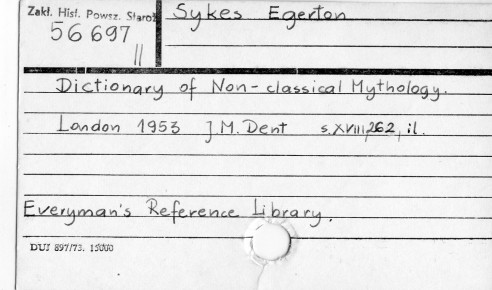 Zakł. Hist. Powsz. Staroż
Sykes Egerton
56 697
II
Dictionary of Non-classical Mythology.
London 1953 J.M. Dent s. XVIII, 262, il.
Everyman's Reference Library.
DUJ 897/73. 15000